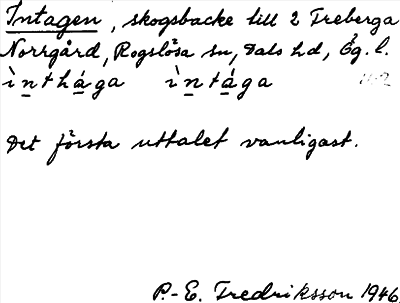 Intagen, skogsbacke till 2 Treberga
Norrgård, Rogslösa sn, Dals hd, Ög. l.
ìnthága ìntága
Det första uttalet vanligast.
P.-E. Fredriksson 1946.